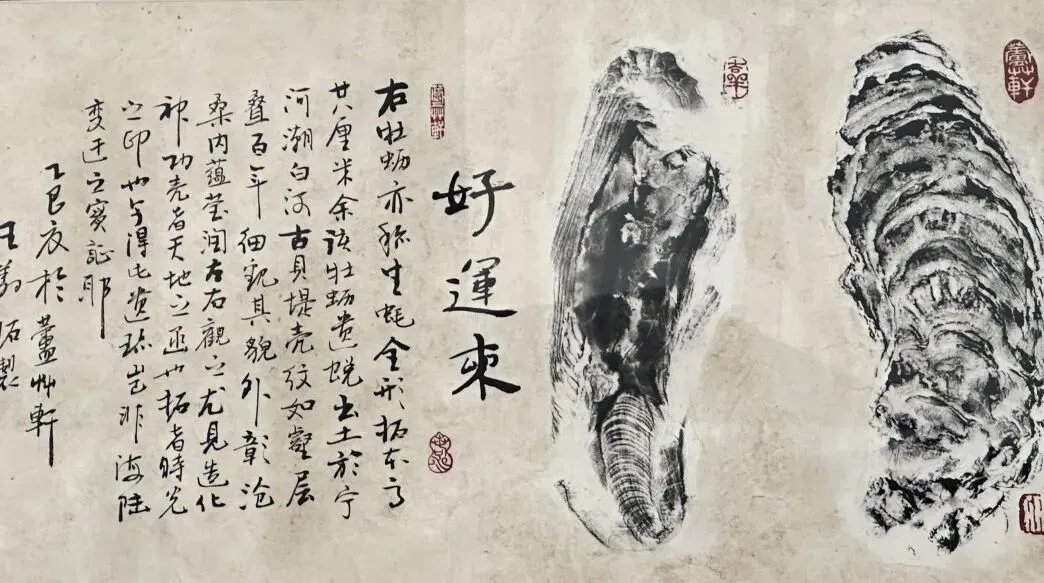 蘆軒
好運來
右牡蛎亦称生蚝全形拓本高
廿八厘米余该牡蛎遗蜕出土於宁
河潮白河古貝堤壳纹如壑层
叠百年细观其貌外彰沧
桑内蕴莹润左右觀之尤見造化
神功壳者天地之函也拓者時光
之印也今得此遗珍岂非海陆
变迁之实証耶
乙巳夏於蘆艸軒
王 石製